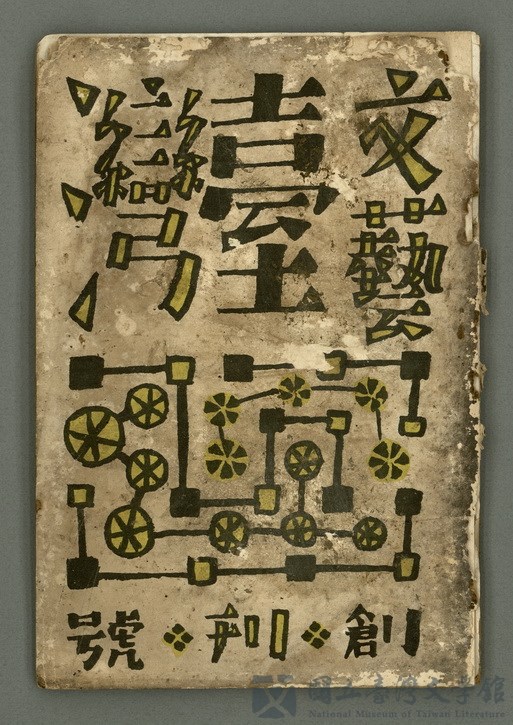 文藝
臺灣
創刊號
國立臺灣文學館
National Museum of Taiwan Literature